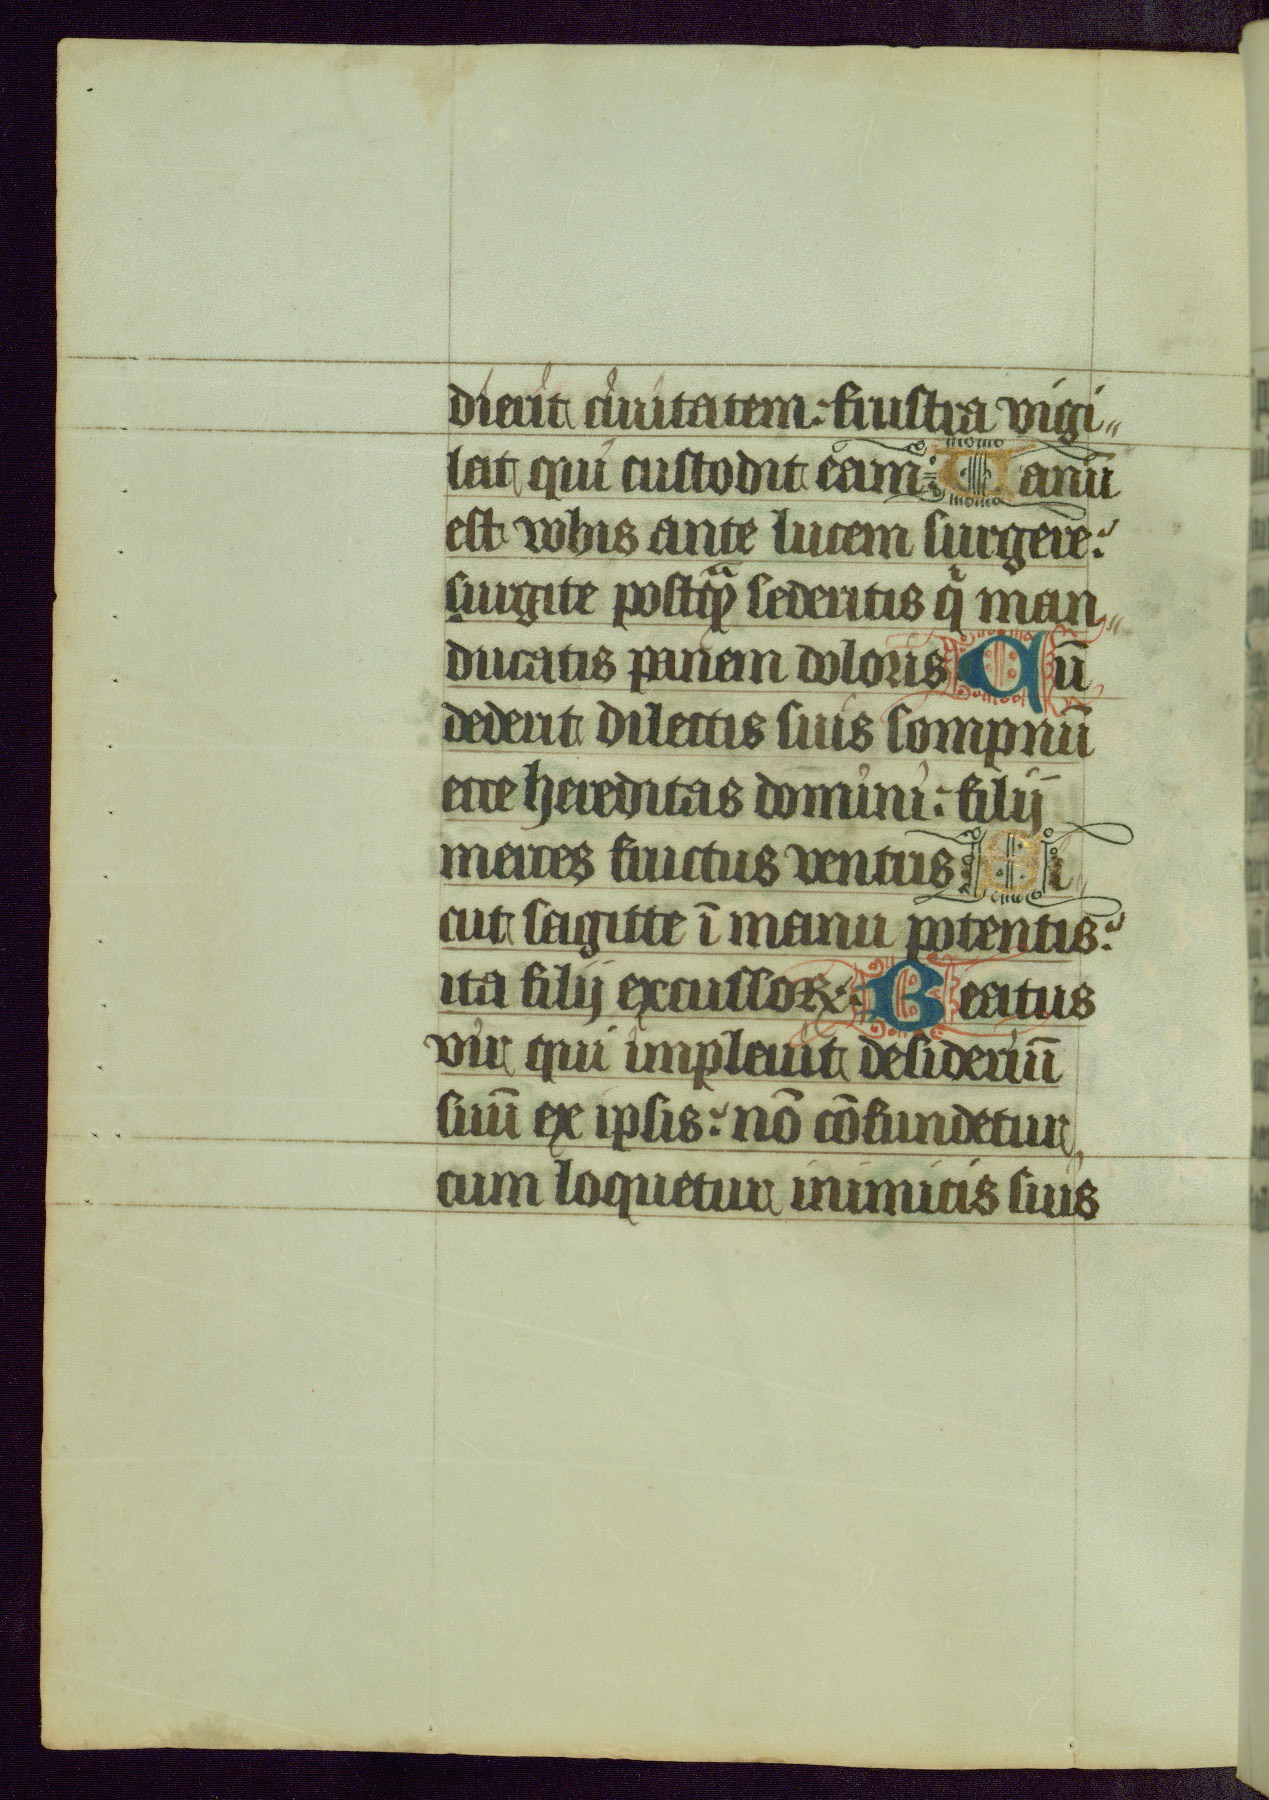 dierit ciuitatem: frustra vigi„
lat qui custodit eam: Uanū
est vobis ante lucem surgere:
surgite postq̄ꝫ sederitis q̄ man„
ducatis panem doloris Cū
dederit dilectis suis sompnū
ecce hereditas domini: filij
merces fructus ventris Si
cut sagitte ī manu potentis:
ita filij excussoꝝ: Beatus
vir qui impleuit desideriū
suū ex ipsis: nō cōfundetur
cum loquetur inimicis suis